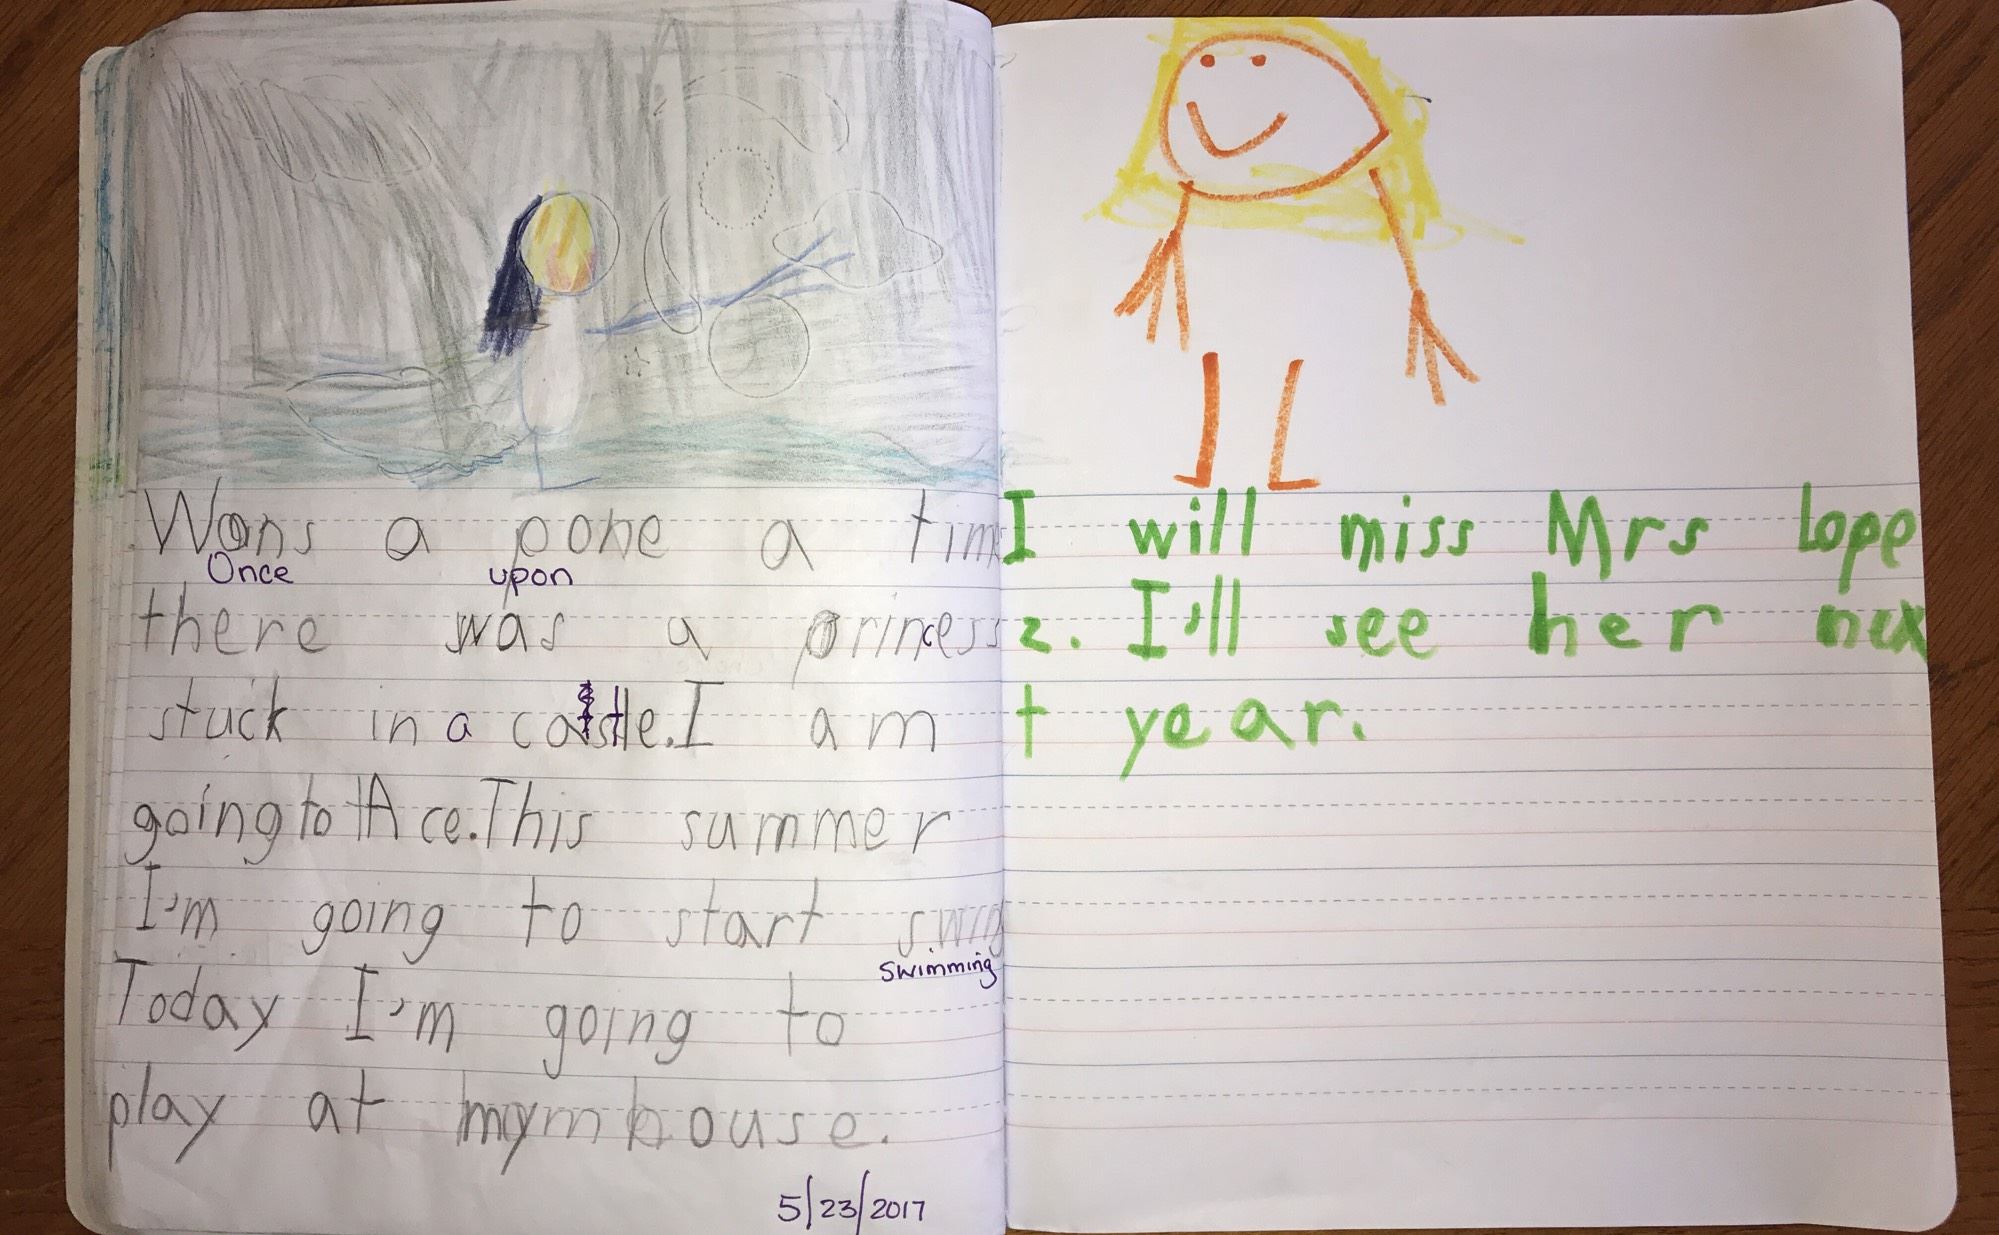 Wons a pone a tim
Once upon
there was a princess
stuck in a castle. I am
going to Ace. This summer
I'm going to start swig
swimming
Today I'm going to
play at my house.
5/23/2017
I will miss Mrs Lope
z. I'll see her nex
t year.